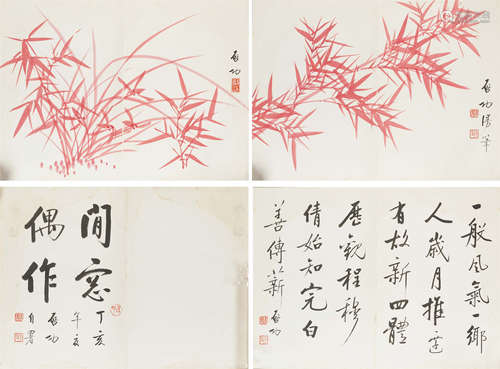 啟功
啟功
閒窓
偶作
丁亥
啟功
自署
一般風氣一鄉
人歲月推遷
有故新四體
歷觀程穆
倩始知完白
善傳薪 啟功